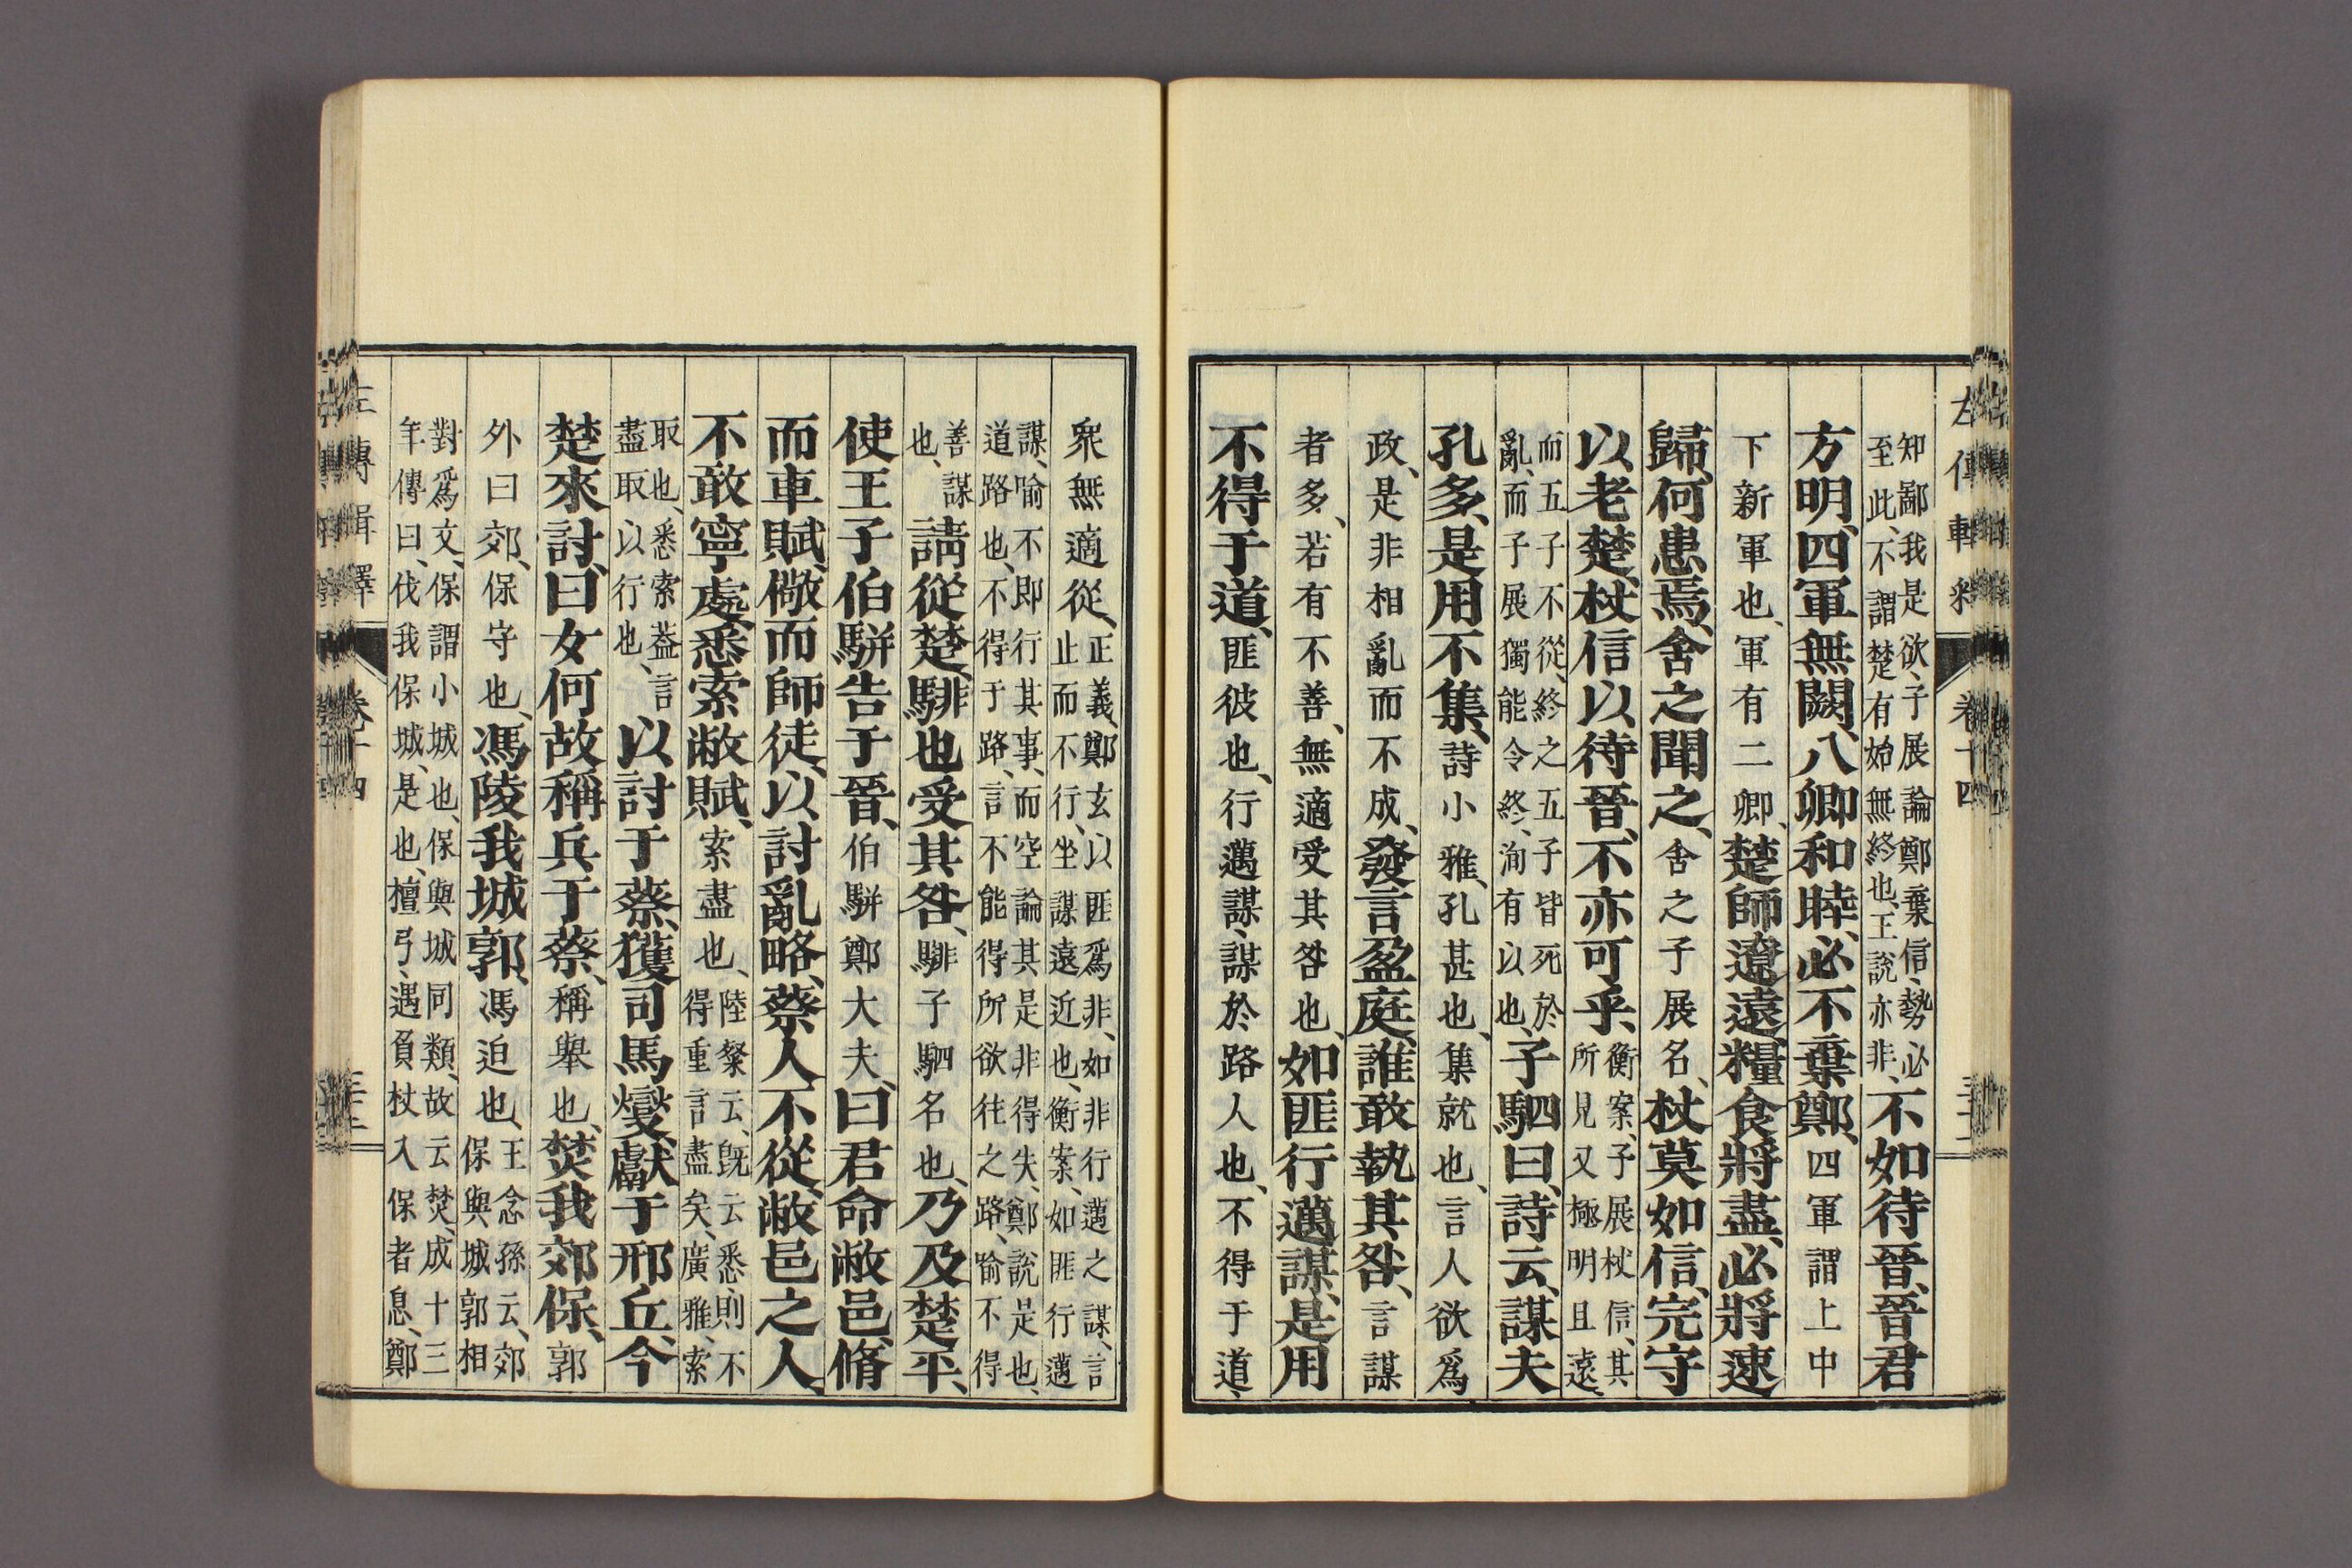 左傳輯釋 卷十四
知鄙我是欲、子展論鄭棄信、勢必
至此、不謂楚有始無終也、王說亦非、
不如待晉、晉君
方明、四軍無闕、八卿和睦、必不棄鄭、四軍謂上中
下新軍也、軍有二卿、楚師遼遠、糧食將盡、必將速
歸、何患焉、舍之聞之、舍之子展名、杖莫如信、完守
以老楚、杖信以待晉、不亦可乎、
衡案、子展杖信、其
所見又極明且遠、
而五子不從、終之五子皆死於
亂、而子展獨能令終、洵有以也、
子駟曰、詩云、謀夫
孔多、是用不集、詩小雅、孔甚也、集就也、言人欲爲
政、是非相亂而不成、發言盈庭、誰敢執其咎、言謀
者多、若有不善、無適受其咎也、如匪行邁謀、是用
不得于道、匪彼也、行邁謀、謀於路人也、不得于道、
衆無適從、
正義、鄭玄以匪爲非、如非行邁之謀、言
止而不行、坐謀遠近也、衡案、如匪行邁
謀、喻不即行其事、而空論其是非得失、鄭說是也、
道路也、不得于路、言不能得所欲往之路、喻不得
善謀
也、
請從楚、騑也受其咎、騑子駟名也、乃及楚平、
使王子伯駢告于晉、伯駢鄭大夫、曰君命敝邑、脩
而車賦、儆而師徒、以討亂略、蔡人不從、敝邑之人、
不敢寧處、悉索敝賦、索盡也、
陸粲云、既云悉、則不
得重言盡矣、廣雅、索
取也、悉索葢言
盡取以行也、
以討于蔡、獲司馬燮、獻于邢丘、今
楚來討、曰女何故稱兵于蔡、稱舉也、焚我郊保、郭
外曰郊、保守也、馮陵我城郭、馮迫也、
王念孫云、郊
保與城郭相
對爲文、保謂小城也、保與城同類、故云焚、成十三
年傳曰、伐我保城、是也、檀弓、遇負杖入保者息、鄭
左傳輯釋 卷十四